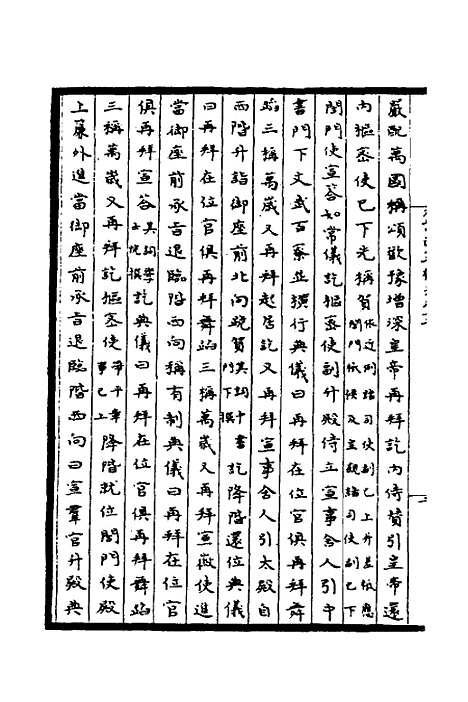 嚴配萬國稱頌歡豫增深皇帝再拜訖內侍贊引皇帝還
內樞密使已下先稱賀依近例諸司使副已上并祗應閤門祗候及主親諸司使副已下
閤門使宣荅如常儀訖樞密使副升殿侍立宣事舍人引中
書門下文武百寮並橫行典儀曰再拜在位官俱再拜舞
蹈三稱萬歲又再拜起居訖又再拜宣事舍人引太尉自
西階升詣御座前北向跪賀其詞中書門下撰訖降階還位典儀
曰再拜在位官俱再拜舞蹈三稱萬歲又再拜宣徽使進
當御座前承旨退臨階西向稱有制典儀曰再拜在位官
俱再拜宣荅其詞學士院撰訖典儀曰再拜在位官俱再拜舞蹈
三稱萬歲又再拜訖樞密使參知政事已上降階就位閤門使殿
上簾外進當御座前承旨退臨階西向曰宣羣官升殿典